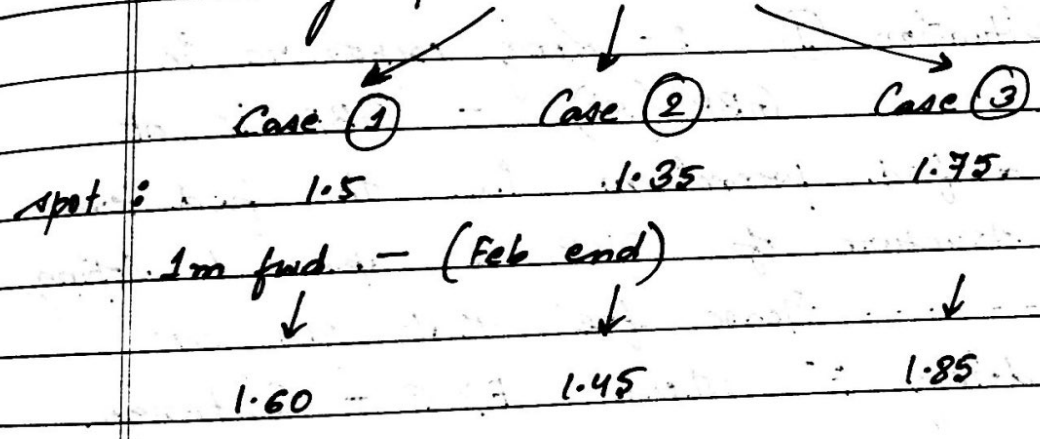 Case ① Case ② Case ③
spot : 1.5 1.35 1.75
1m fwd - (Feb end)
1.60 1.45 1.85